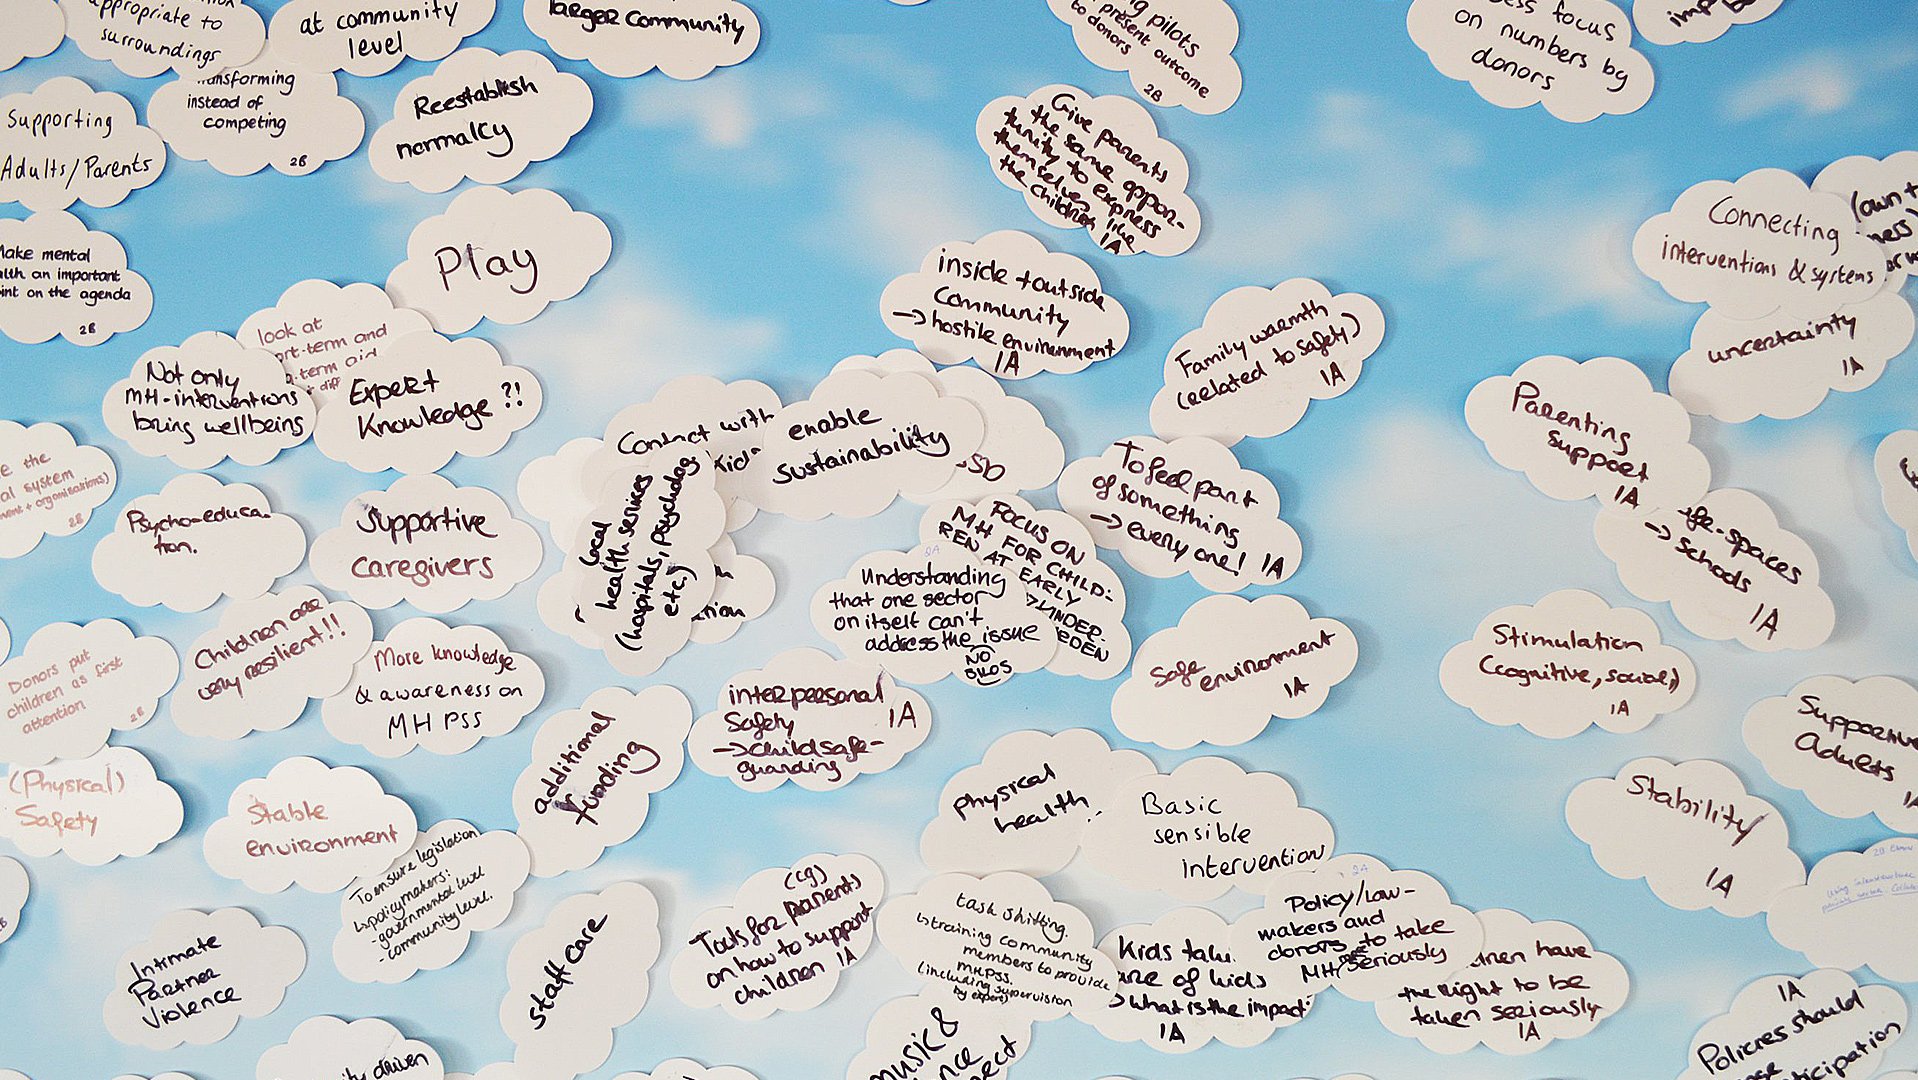 appropriate to
surroundings
at community
level
larger community
pilots
present outcome
to donors
2B
focus
on numbers by
donors
Supporting
Adults/Parents
instead of
competing
2B
Reestablish
normalcy
Give parents
the same oppor-
tunity to express
themselves like
the children
1A
Connecting
interventions & systems
(own +
Make mental
health an important
point on the agenda
2B
Play
inside + outside
Community
→ hostile environment
1A
Family warmth
(related to safety)
1A
uncertainty
1A
look at
short-term and
term aid
Not only
MH-interventions
bring wellbeing
Expert
Knowledge ?!
Contact with
Kids
enable
sustainability
Parenting
support
1A
the
system
2B
Psycho-educa-
tion.
Supportive
caregivers
local
health services
(hospitals, psychology
etc.)
FOCUS ON
MH FOR CHILD-
REN AT EARLY
2A
Understanding
that one sector
on itself can't
address the issue
NO
SILOS
To feel part
of something
→ every one!
1A
safe-spaces
→ schools
1A
Donors put
children as first
attention
2B
Children are
very resilient!!
More knowledge
& awareness on
MHPSS
interpersonal
safety
1A
→ child safe-
guarding
safe environment
1A
Stimulation
(cognitive, social,)
1A
Supportive
Adults
1A
(Physical)
Safety
Stable
environment
additional
funding
physical
health.
Basic
sensible
intervention
Stability
1A
To ensure legislation
↳ policymakers:
- governmental level
- community level.
Intimate
Partner
Violence
Staff care
(cg)
Tools for parents
on how to support
children
1A
task shifting.
↳ training community
members to provide
MHPSS.
(including supervision
by expert)
Kids take
care of kids
→ what is the impact
1A
2A
Policy/law-
makers and
donors to take
MHPSS seriously
children have
the right to be
taken seriously
1A
driven
music &
1A
Policies should